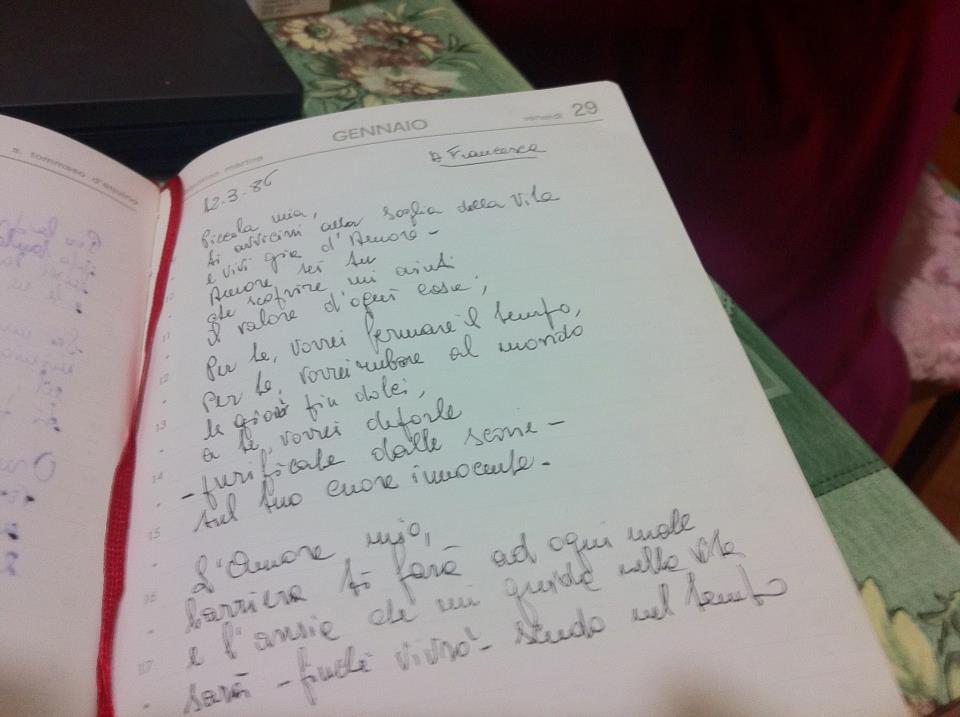 s. tommaso d'aquino
GENNAIO
venerdì 29
martire
A Francesca
12.3.86
Piccola mia,
ti avvicini alla soglia della vita
e vivi già d'Amore -
Amore sei tu
che scoprire mi aiuti
il valore d'ogni cosa;
Per te, vorrei fermare il tempo,
per te, vorrei rubare al mondo
le gioie più dolci,
a te, vorrei deporle
- purificate dalle scorie -
sul tuo cuore innocente -
L'Amore mio,
barriera ti farà ad ogni male
e l'ansia che mi guida nella vita
sarà - finché vivrò - scudo nel tempo
10
11
12
13
14
15
16
17